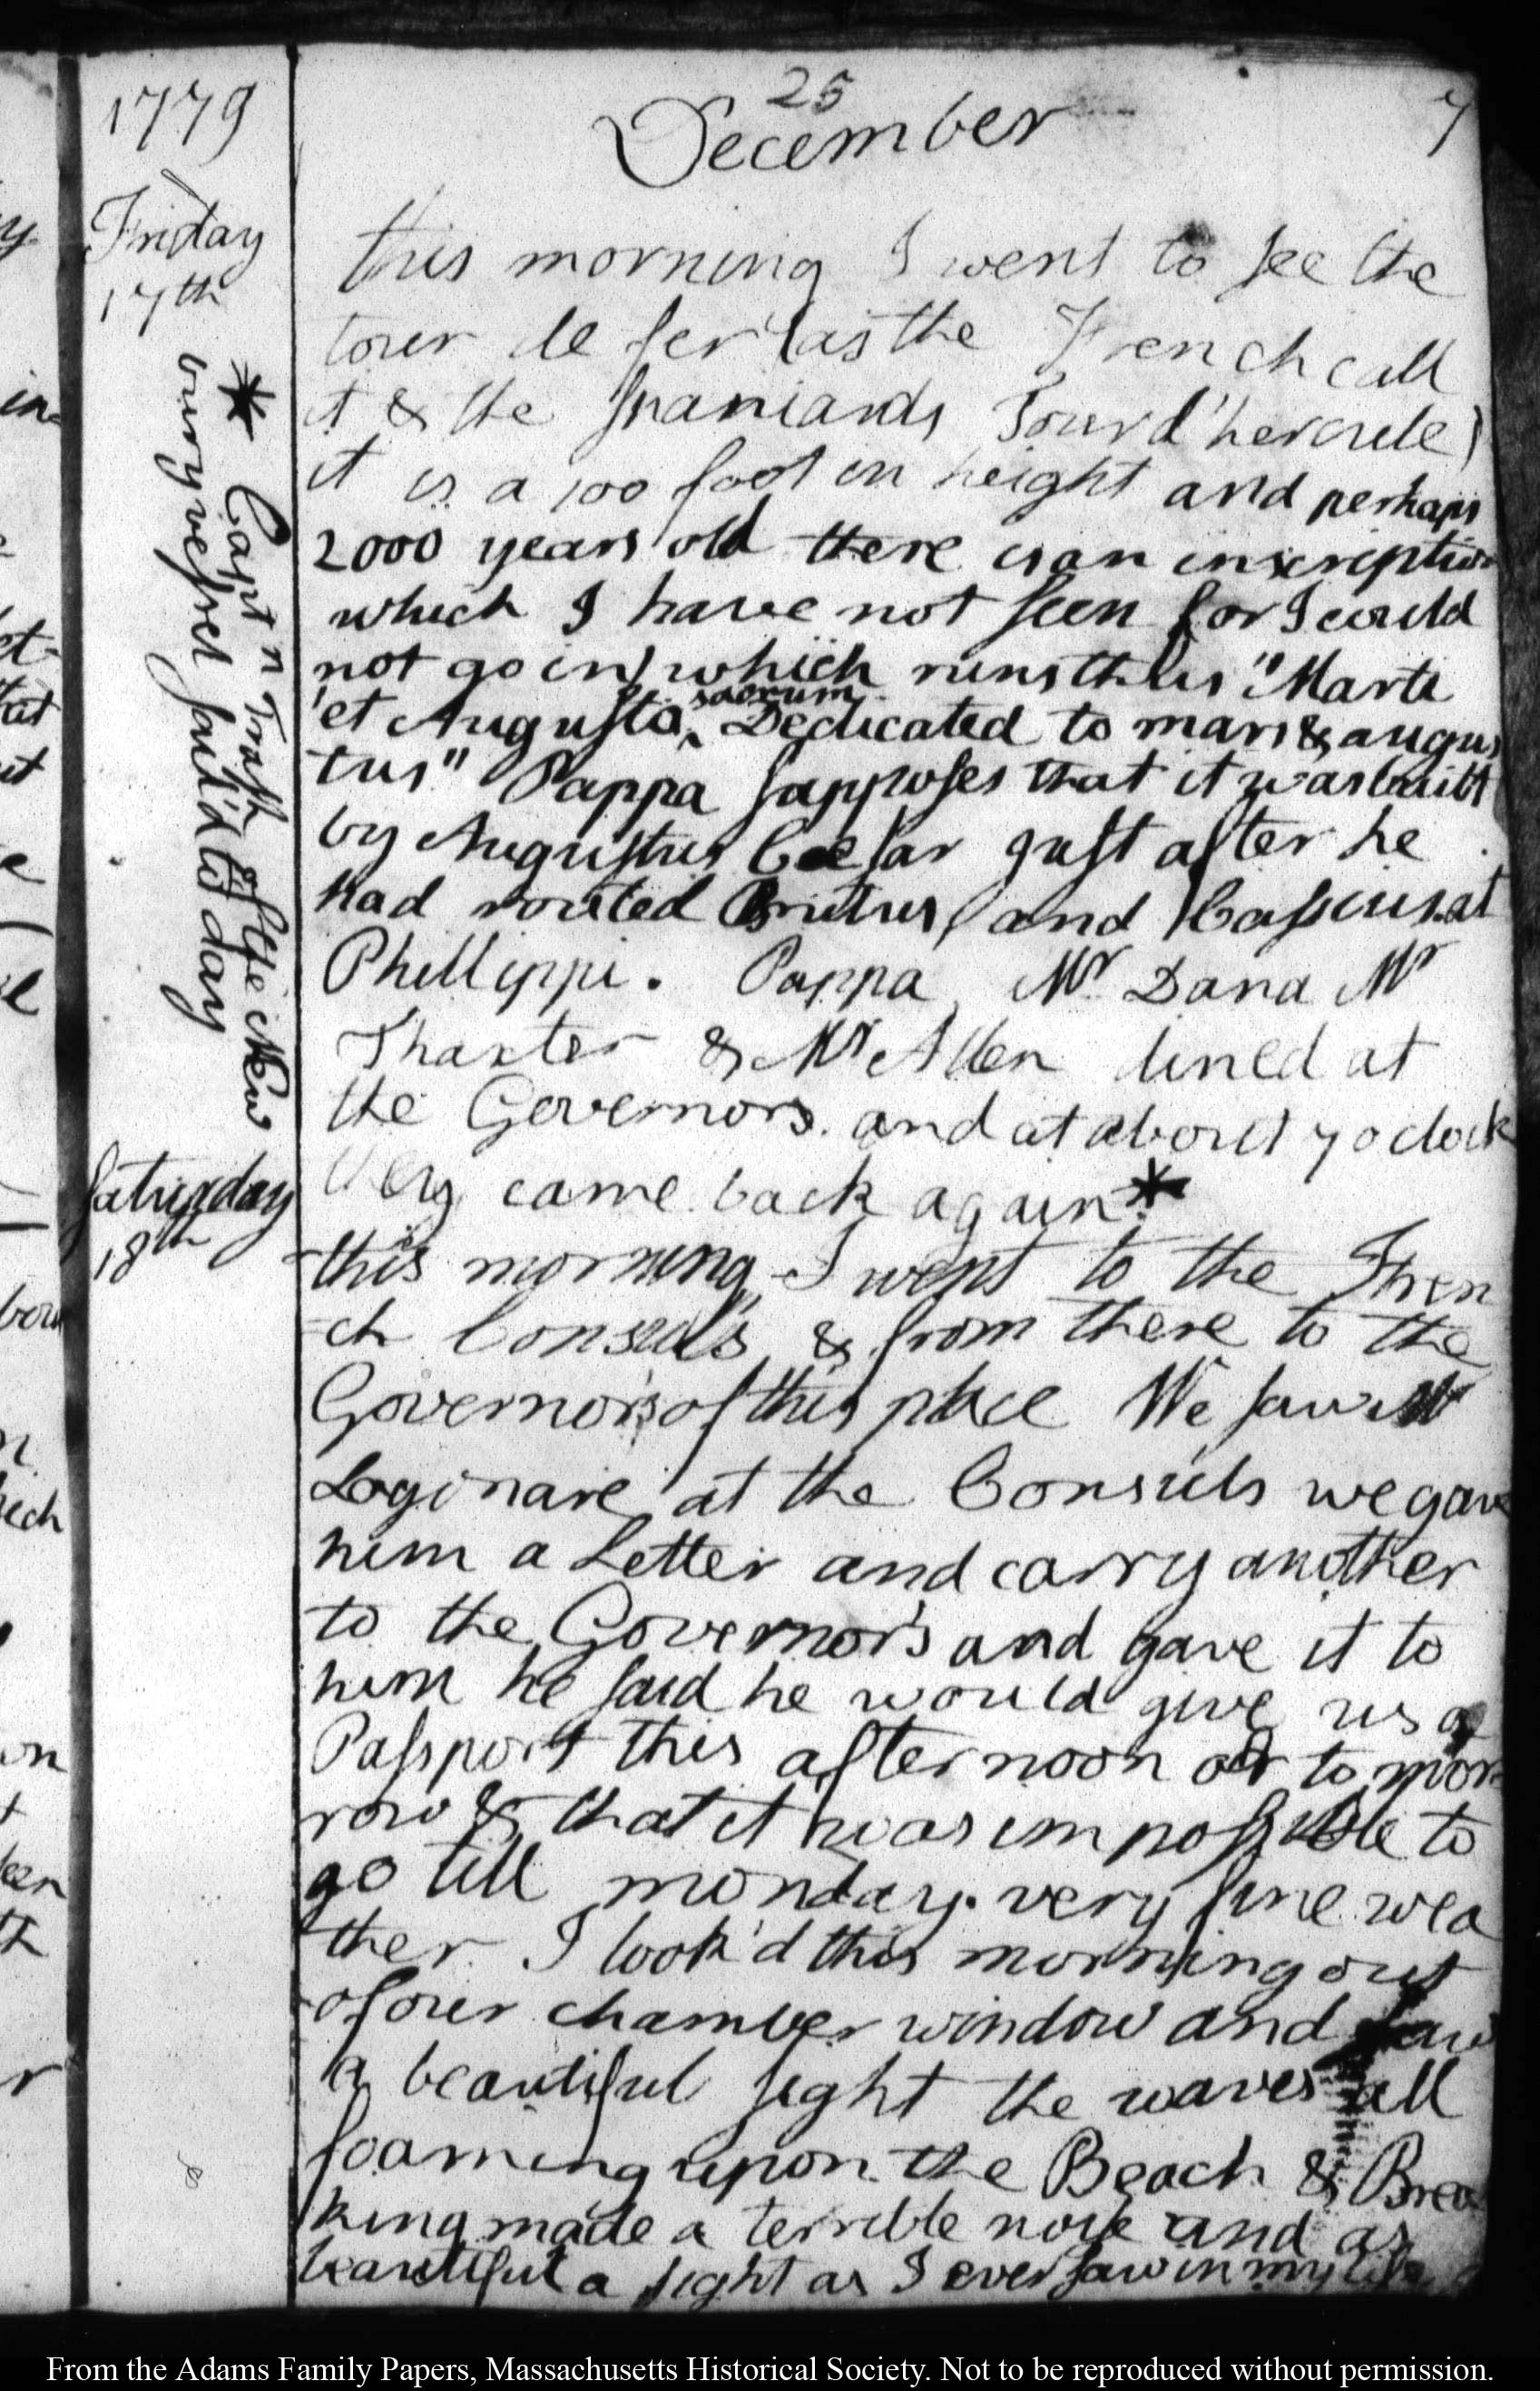 1779
25
December
7
Friday
17th
this morning I went to see the
tour de fer (as the French call
it & the Spaniards Tour d'hercule)
it is a 100 foot in height and perhaps
2000 years old there is an inscription
which I have not seen (for I could
not go in) which runs thus "Marti
'et Augusto, sacrum Dedicated to mars & augus
tus" Pappa supposes that it was built
by Augustus Caesar just after he
had routed Brutus and Cassius at
Phillippi. Pappa, Mr Dana Mr
Thaxter & Mr Allen dined at
the Governors. and at about 7 o clock
they came back again *
* Captn Trash of the New
bury vessel sail'd to day
Saturday
18th
this morning I went to the Fren
-ch Consuls & from there to the
Governor's of this place We saw Mr
Loginare at the Consuls we gave
him a Letter and carry another
to the Governor's and gave it to
him he said he would give us a
Passport this afternoon or to mor
row & that it was impossible to
go till monday. very fine wea
ther. I look'd this morning out
of our chamber window and saw
a beautiful sight the waves all
foaming upon the Beach & Brea
king made a terrible noise and as
beautiful a sight as I ever saw in my life
From the Adams Family Papers, Massachusetts Historical Society. Not to be reproduced without permission.